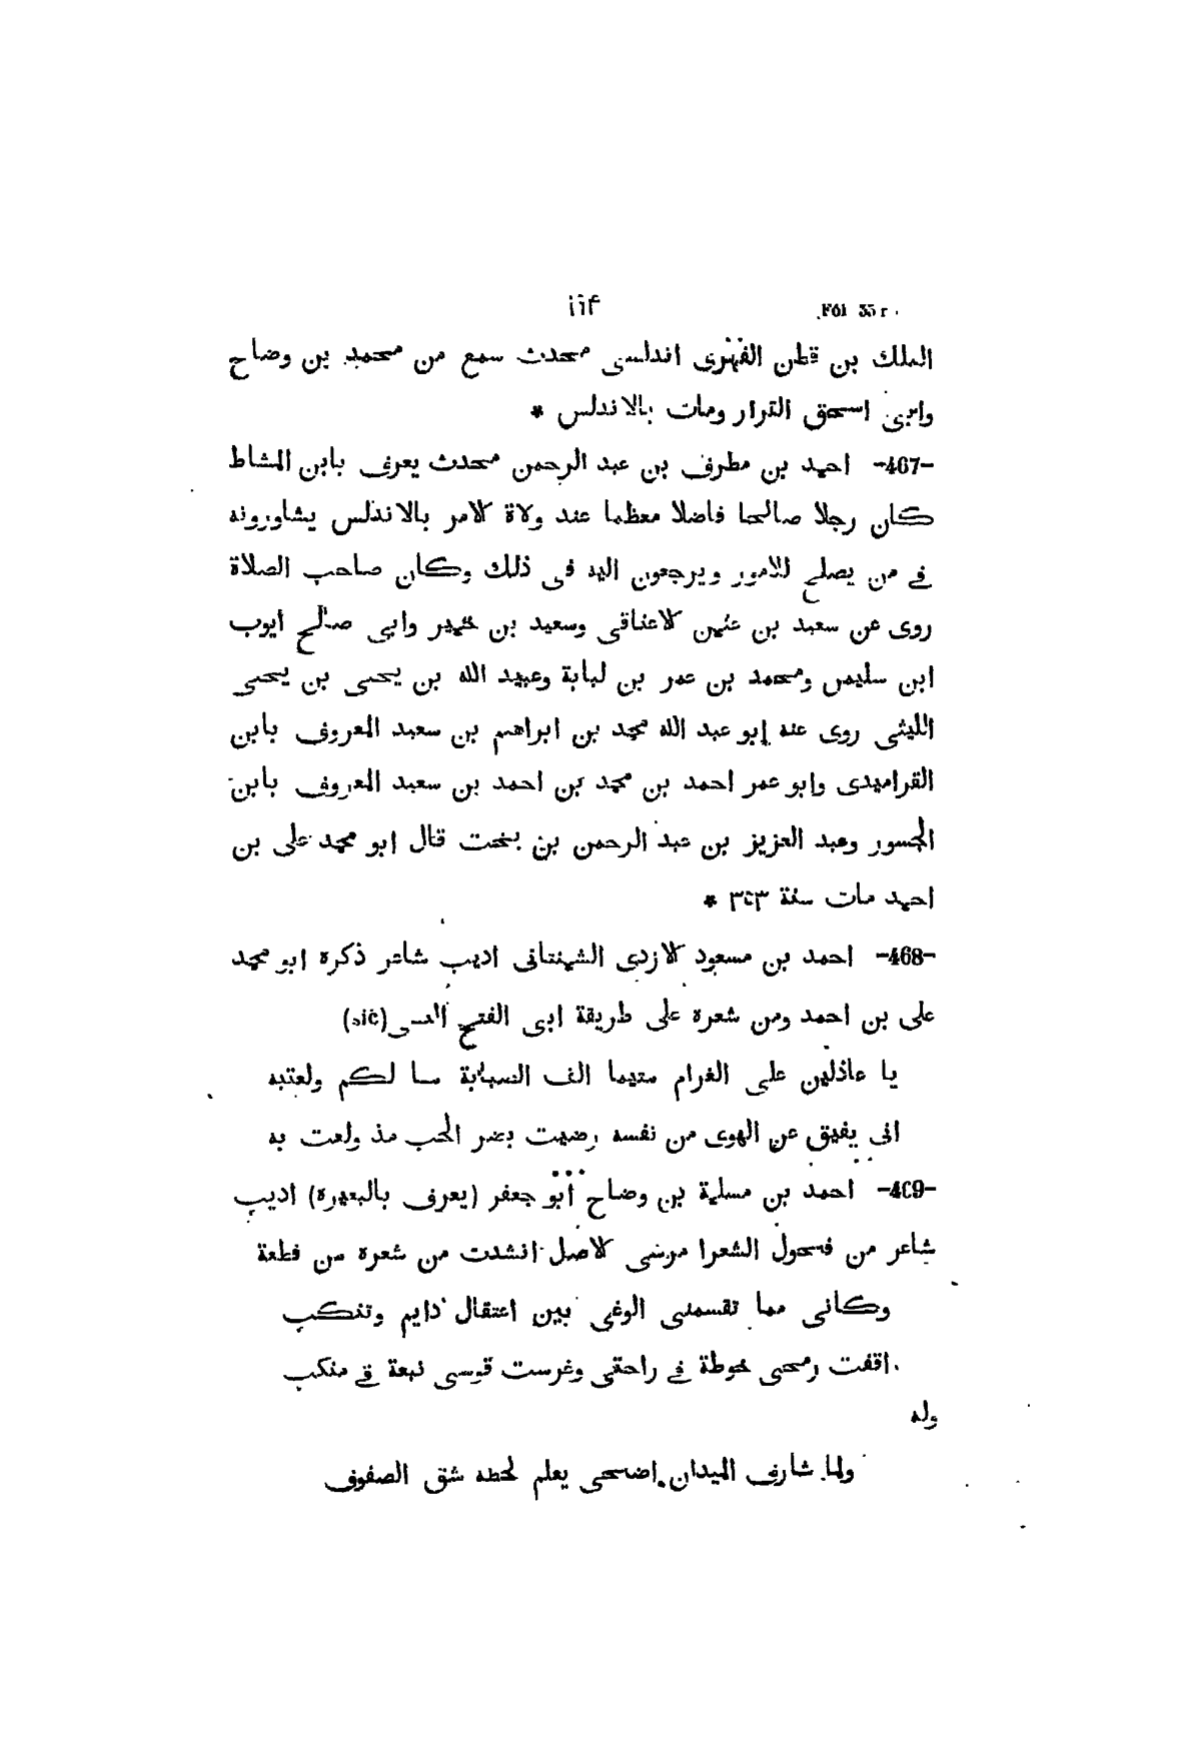 ١٩٤ Fol 55 r.
الملك بن قطن الفهرى اندلسى محدث سمع من محمد بن وضاح
وابى اسحق القرار ومات بالاندلس *
-467- احمد بن مطرف بن عبد الرحمن محدث يعرف بابن المشاط
كان رجلا صالحا فاضلا معظما عند ولاة الامر بالاندلس يشاورونه
في من يصلح للامور ويرجعون اليه فى ذلك وكان صاحب الصلاة
روى عن سعيد بن عثمن الاعناقى وسعيد بن خمير وابى صالح ايوب
ابن سليمن ومحمد بن عمر بن لبابة وعبيد الله بن يحيى بن يحيى
الليثى روى عنه ابو عبد الله محمد بن ابراهيم بن سعيد المعروف بابن
القراميدى وابو عمر احمد بن محمد بن احمد بن سعيد المعروف بابن
الجسور وعبد العزيز بن عبد الرحمن بن بخت قال ابو محمد على بن
احمد مات سنة *
-468- احمد بن مسعود الازدى الشمنتانى اديب شاعر ذكرة ابو محمد
على بن احمد ومن شعرة على طريقة ابى الفتح (sic)
يا عاذلين على الغرام متيما الف الصبابة ما لكم ولعتبه
انى يفيق عن الهوى من نفسه رضيت بضر الحب مذ ولعت به
-469- احمد بن مسلمة بن وضاح ابو جعفر (يعرف بالبعيرة) اديب
شاعر من فحول الشعرا مرسى الاصل انشدت من شعرة من قطعة
وكانى مما تقسمنى الوغى بين اعتقال دايم وتنكب
اقفت رمحى خوطة في راحتى وغرست قوسى نبعة في منكب
وله
ولما شارف الميدان اضحى يعلم لحظه شق الصفوف